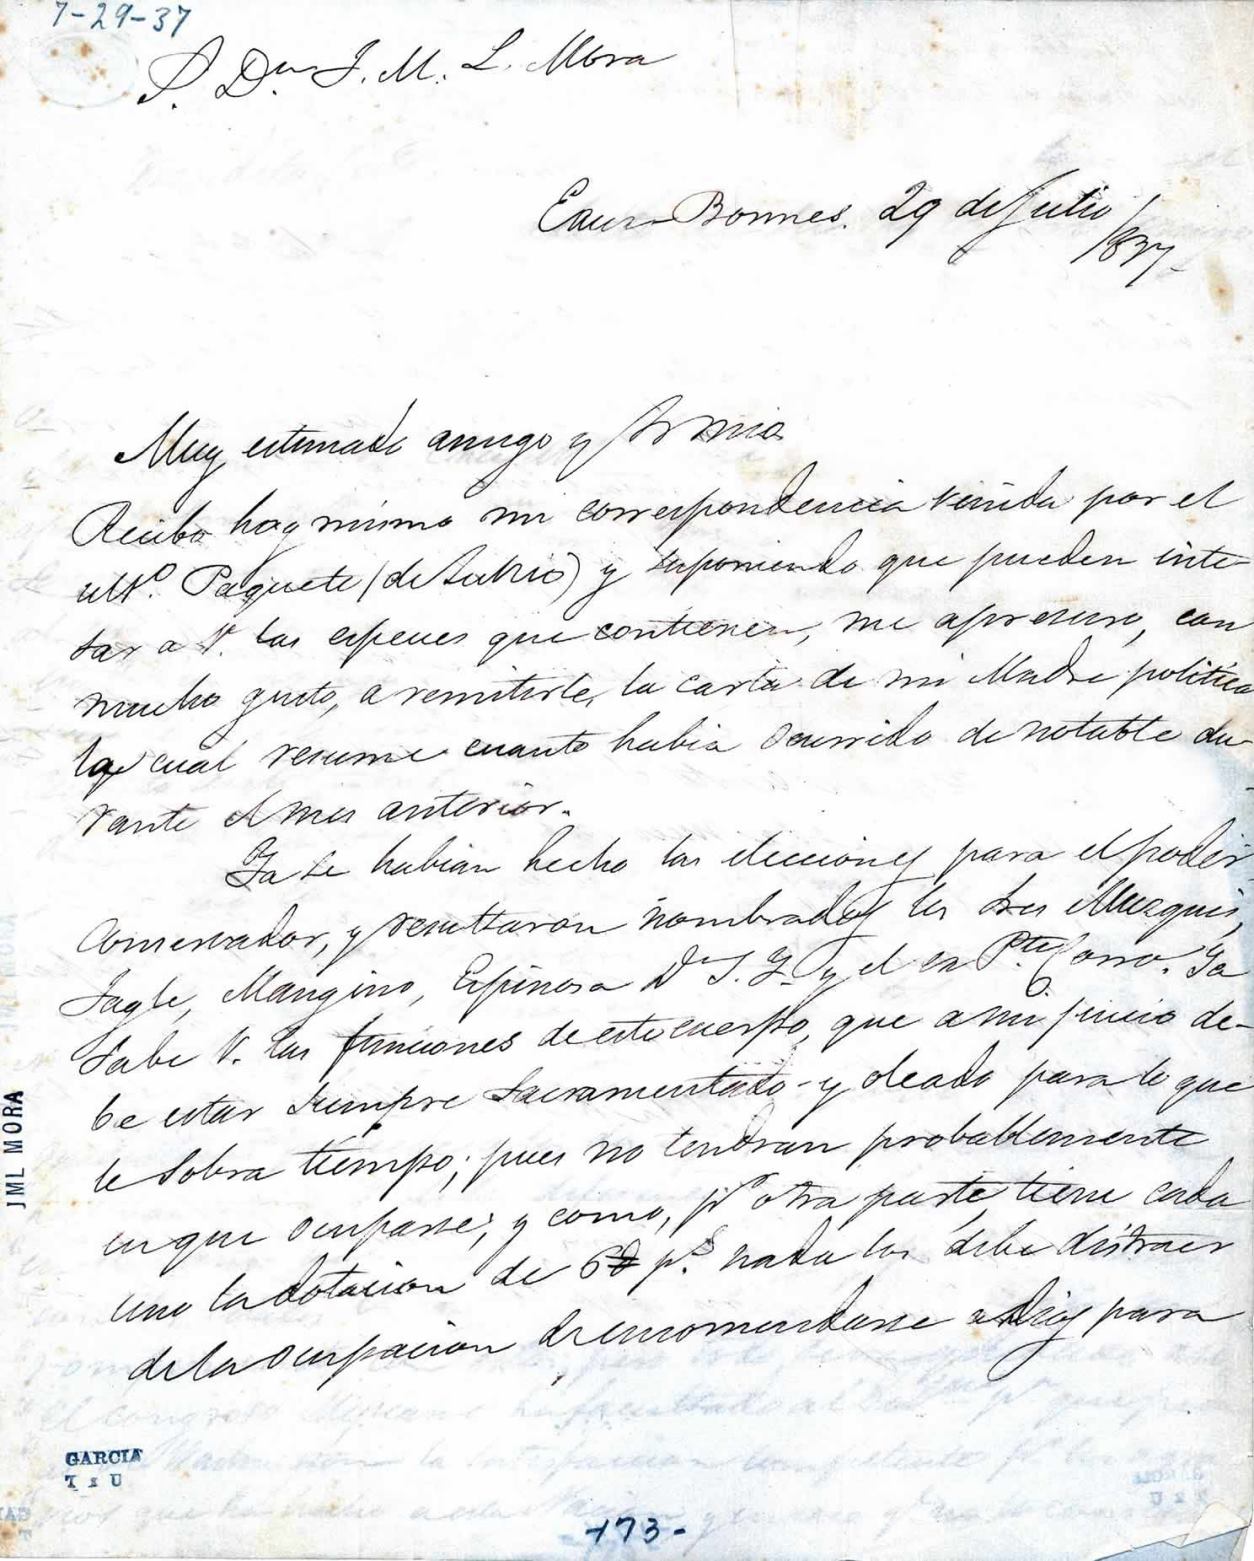 7-29-37
S. Dn J. M. L. Mora
Eaux-Bonnes. 29 de Julio
1837-
Muy estimado amigo y Sor mio
Recibo hoy mismo mi correspondencia venida por el
ulto. Paquete (de Junio) y suponiendo que pueden inte-
sar a V. las especies que contienen, me apresuro, con
mucho gusto, a remitirle, la carta de mi Madre politica
la cual resume cuanto habia ocurrido de notable du-
rante el mes anterior.
Ya se habian hecho las elecciones para el poder
Conservador, y resultaron nombrados los Sres Muzquis,
Tagle, Mangino, Espinosa Dn J. Y. y el ex Pte. Corro. Ya
Sabe V. las funciones de este cuerpo, que a mi juicio de-
be estar siempre Sacramentado - y oleado para lo que
le Sobra tiempo; pues no tendran probablemente
en que ocuparse; y como, pr otra parte, tiene cada
uno la dotacion de 6 ps. nada los debe distraer
de la ocupacion de encomendarse a dios para
JML MORA
GARCIA
T x U
-173-